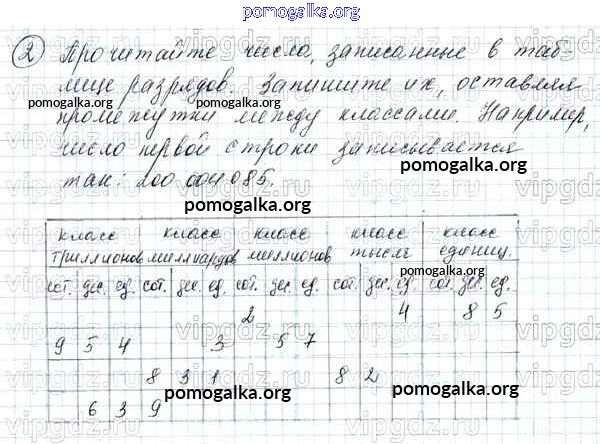 pomogalka.org
② Прочитайте числа, записанные в таб-
лице разрядов. Запишите их, оставляя
pomogalka.org pomogalka.org
промежутки между классами. Например,
число первой строки записывается
pomogalka.org
так: 200 004 085.
pomogalka.org
класс класс класс класс класс
триллионов миллиардов миллионов тысяч единиц.
pomogalka.org
сот. дес. ед. сот. дес. ед. сот. дес. ед. сот. дес. ед. сот. дес. ед.
2 4 8 5
9 5 4 3 5 7
8 3 1 8 2
pomogalka.org pomogalka.org
6 3 9
vipgdz.ru